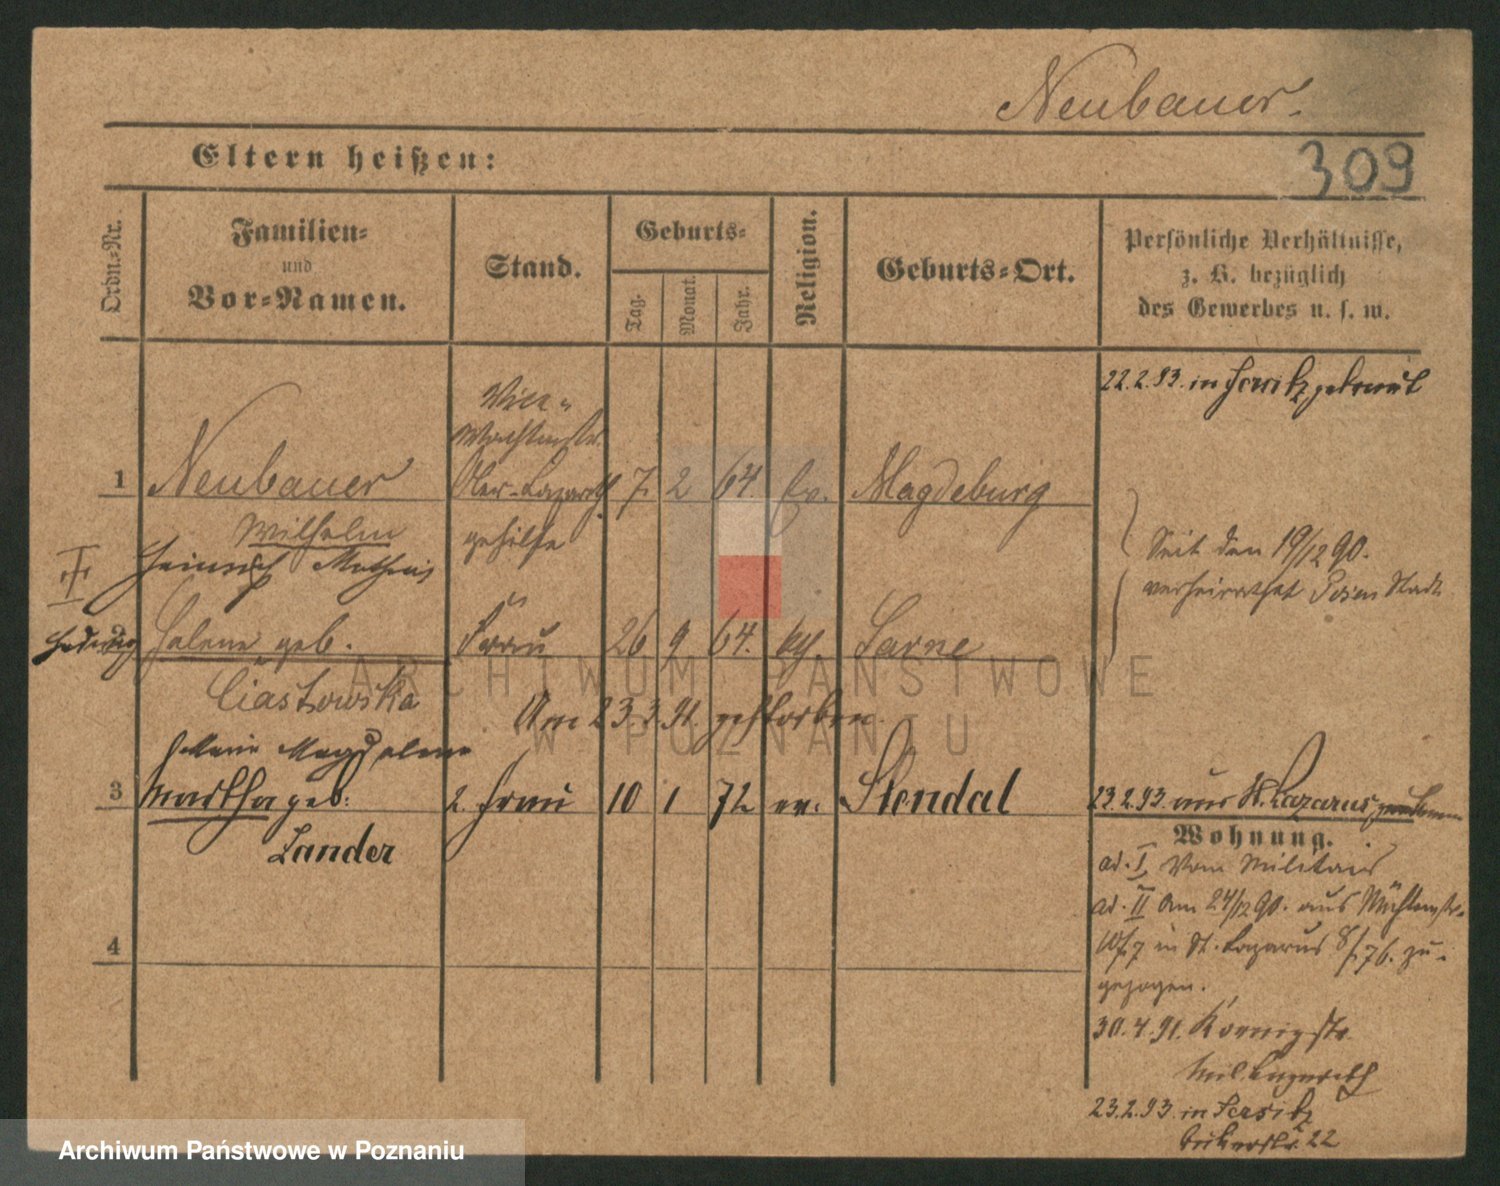 Neubauer.
Eltern heißen:
309
Ordn.-Nr.
Familien-
und
Vor-Namen.
Stand.
Geburts-
Tag.
Monat.
Jahr.
Religion.
Geburts-Ort.
Persönliche Verhältnisse,
z. B. bezüglich
des Gewerbes u. s. w.
22.2.93. in Jersitz getraut
Vice-
Wachtmstr.
1 Neubauer Ober-Lazareth 7. 2 64. Ev. Magdeburg
Wilhelm gehilfe
Heinrich Mathias
Seit den 19/12 90.
verheirathet Posen Stadt
Hedwig 2 Helene geb. Frau 26 9 64. kh. Sarne
Ciastowska
Am 23.3.91. gestorben.
Marie Magdalene
3 Martha geb: 2. Frau 10 1 72 ev. Stendal
Lander
23.2.93. aus St. Lazarus
Wohnung.
ad. I. Vom Militair
ad. II Am 24/12 90. aus
in St. Lazarus 76. zu-
gezogen.
4
30.4.91. Königstr.
Mil. Lazareth
23.2.93. in Jersitz
22
ARCHIWUM PAŃSTWOWE
W POZNANIU
Archiwum Państwowe w Poznaniu